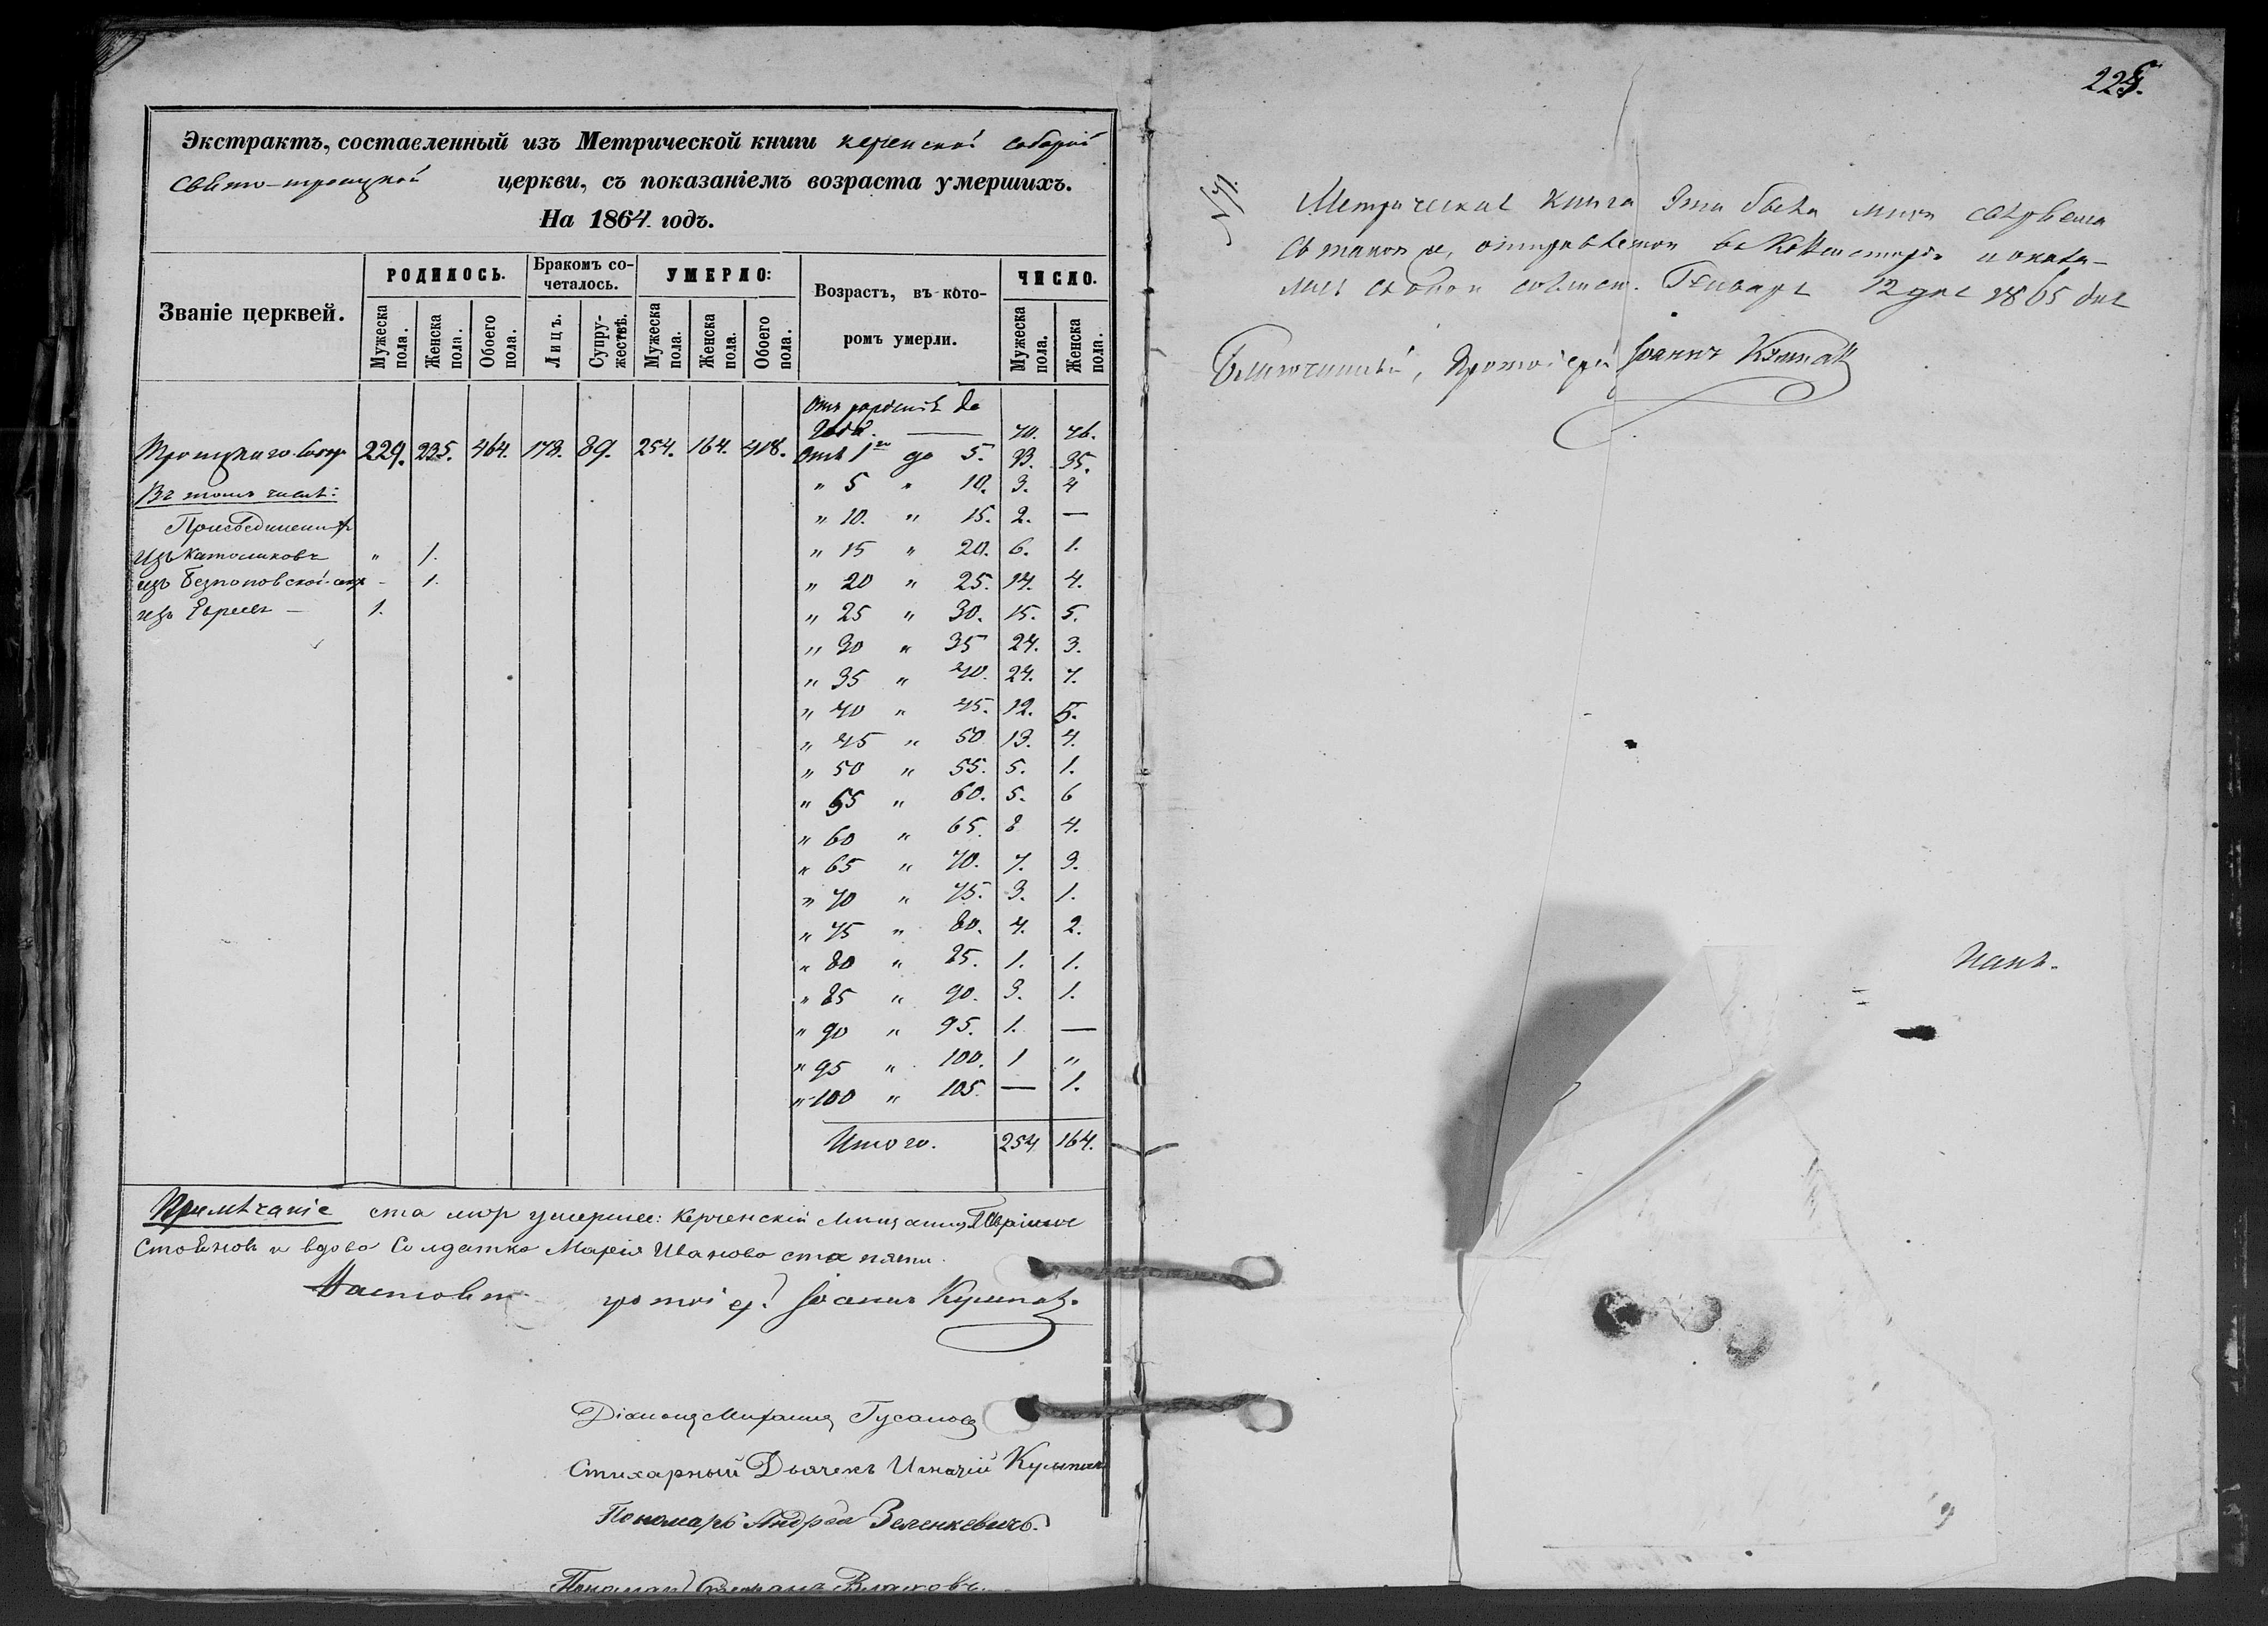 Экстрактъ, составленный изъ Метрической книги керченской соборной
Свято-троицкой церкви, съ показаніемъ возраста умершихъ.
На 1864 годъ.
Званіе церквей.
РОДИЛОСЬ.
Мужеска пола.
Женска пола.
Обоего пола.
Бракомъ сочеталось.
Лицъ.
Супружествъ.
УМЕРЛО:
Мужеска пола.
Женска пола.
Обоего пола.
Возрастъ, въ которомъ умерли.
ЧИСЛО.
Мужеска пола.
Женска пола.
Троицкаго Собор. 229. 235. 464. 178. 89. 254. 164. 418.
Въ томъ числѣ:
Присоединени
Изъ Католиковъ " 1.
изъ Безпоповской - 1.
изъ Евреевъ — 1.
Отъ рожденія до
года. — 70. 76.
Отъ 1го до 5. 33. 35.
" 5 " 10. 3. 4
" 10. " 15. 2. —
" 15 " 20. 6. 1.
" 20 " 25. 14. 4.
" 25 " 30. 15. 5.
" 30 " 35 24. 3.
" 35 " 40. 24. 7.
" 40 " 45. 12. 5.
" 45 " 50 13. 4.
" 50 " 55. 5. 1.
" 55 " 60. 5. 6
" 60 " 65. 8 4.
" 65 " 70. 7. 3.
" 70 " 75. 3. 1.
" 75 " 80. 4. 2.
" 80 " 85. 1. 1.
" 85 " 90. 3. 1.
" 90 " 95. 1. —
" 95 " 100. 1 "
" 100 " 105. — 1.
Итого. 254 164.
Примѣчаніе ста умершіе: Керченскій Мищанинъ
Стоянов и вдова Солдатка Марія Иванова ста пяти.
протоіер. Іоаннъ
Діаконъ Гусаковъ
Стихарный Дьячекъ Игнатій
Пономарь Андрей Зеленкевичъ.
Пономарь
225.
Метрическая книга эта была мною свѣрена
съ таковою же, отправляемою въ Консисторію и оказа-
лась съ оною согласн. Генваря 12 дня 1865 года
Благочинный, Протоіерей Іоаннъ